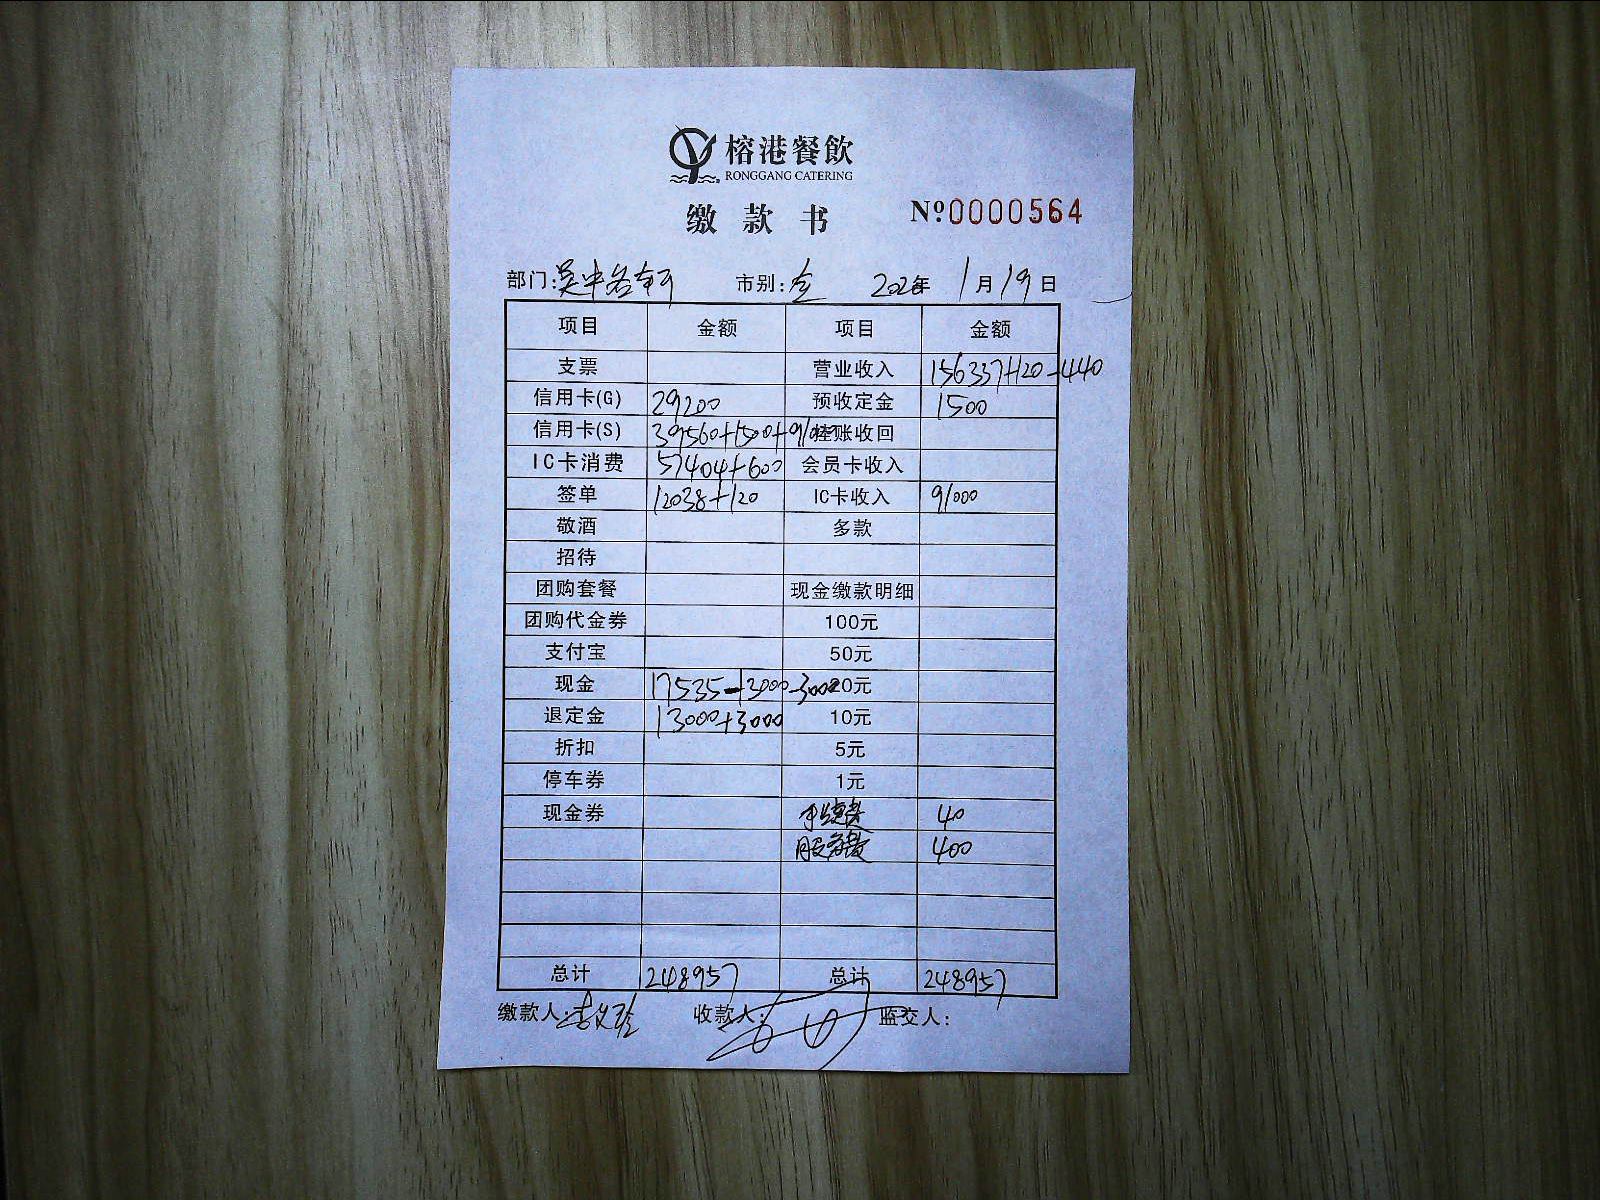 榕港餐飲
RONGGANG CATERING
缴款书 №0000564
部门: 市别:全 202 年 1月19日
项目 金额 项目 金额
支票 营业收入 156337+120-440
信用卡(G) 29200 预收定金 1500
信用卡(S) 39560+1500+91000 挂账收回
IC卡消费 57404+600 会员卡收入
签单 12038+120 IC卡收入 91000
敬酒 多款
招待
团购套餐 现金缴款明细
团购代金券 100元
支付宝 50元
现金 17535-13000-3000 20元
退定金 13000+3000 10元
折扣 5元
停车券 1元
现金券 手续费 40
服务费 400
总计 248957 总计 248957
缴款人: 收款人: 监交人: